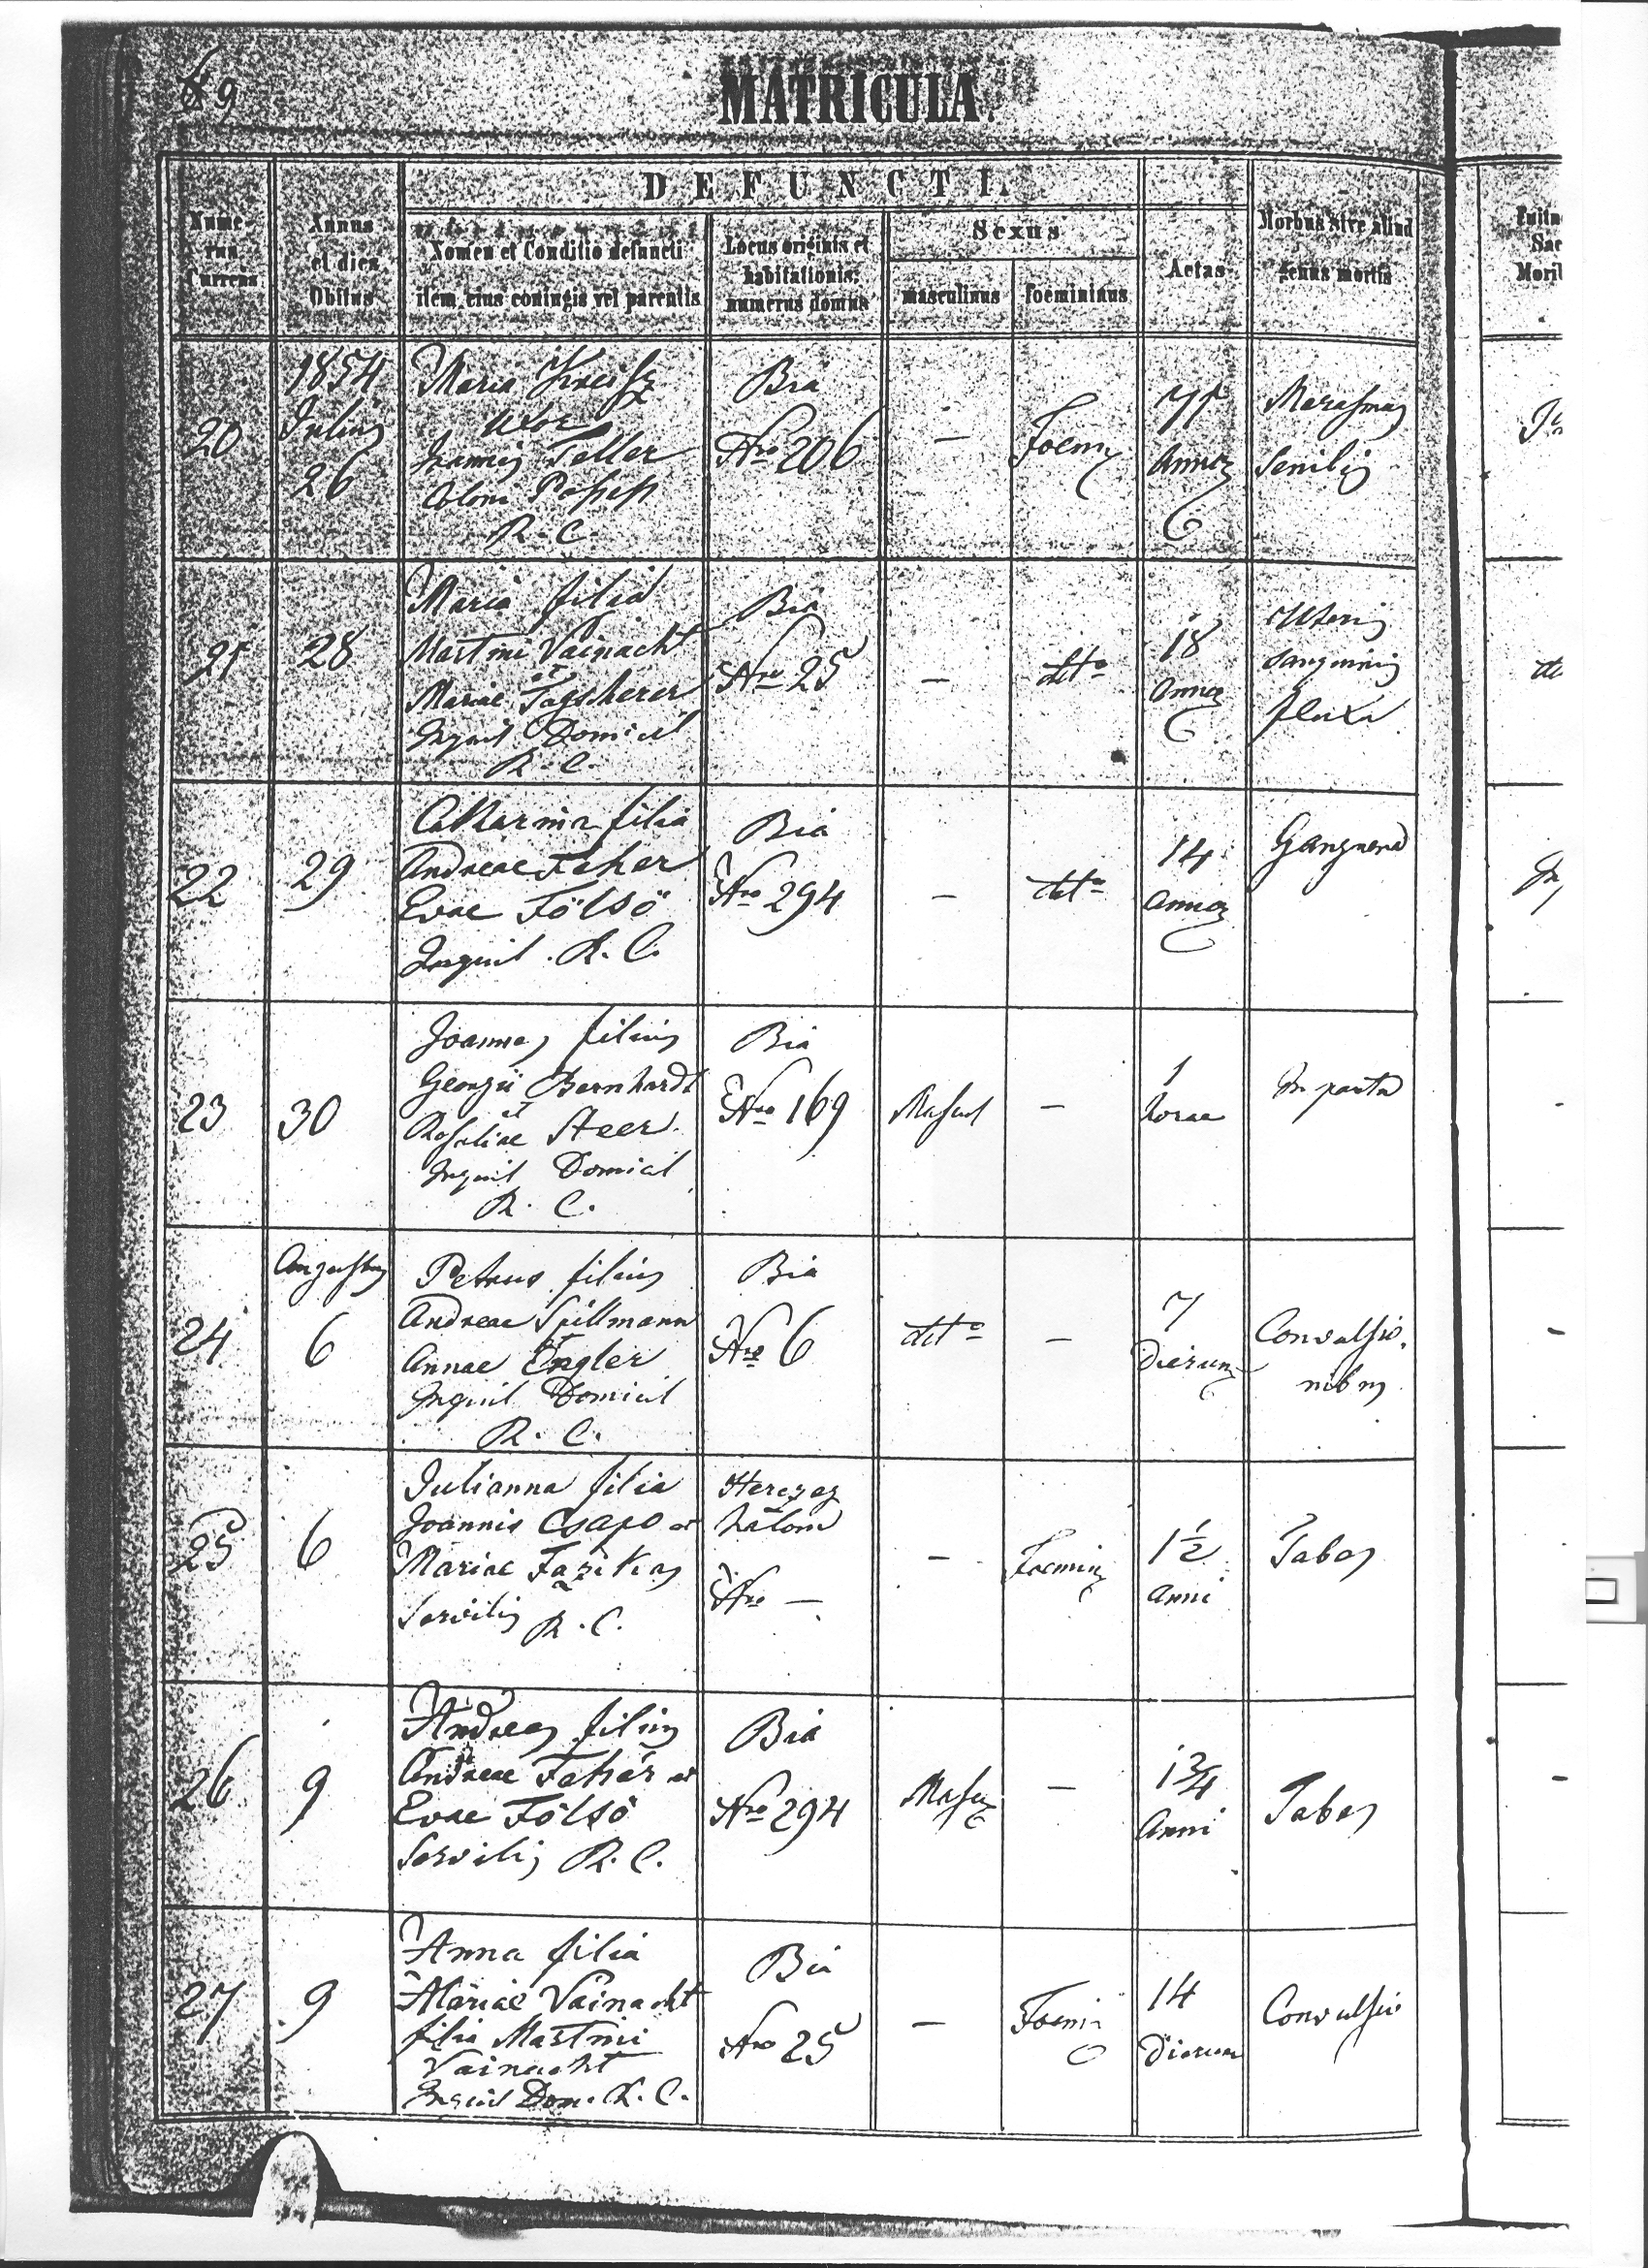 69
MATRICULA.
DEFUNCTI.
Nume-
rus
Currens
Annus
et dies
Obitus
Nomen et Conditio defuncti
item eius coniugis vel parentis
Locus originis et
habitationis;
numerus domus
Sexus
masculinus
foemininus
Aetas
Morbus sive aliud
genus mortis
20
1854
Julius
26
Maria
uxor
Joannis Teller
Coloni
R. C.
Bia
Nro 206
—
Foem
71
Annor
Marasmus
Senilis
21
28
Maria filia
Martini Vainacht
et
Mariae
Inquil Domicil
R. C.
Bia
Nro 25
—
dtto
18
Annor
Uterin
sanguinis
fluxu
22
29
Catharina filia
Andreae Feher
Evae Fölsö
Inquil. R. C.
Bia
Nro 294
—
dtto
14
Annor
Gangrena
23
30
Joannes filius
Georgii Bernhardt
et
Rosaliae Steer.
Inquil Domicil
R. C.
Bia
Nro 169
Mascul
—
1
horae
In partu
24
Augustus
6
Petrus filius
Andreae Spillmann
et
Annae Engler
Inquil Domicil
R. C.
Bia
Nro 6
dtto
—
7
Dierum
Convulsio-
nibus
25
6
Julianna filia
Joannis Csapo et
Mariae Fazekas
Servilis R. C.
Herczeg
halom
Nro —
—
Foemin
1½
anni
Tabes
26
9
Andreas filius
Andreae Fehér et
Evae Fölsö
Servilis R. C.
Bia
Nro 294
Mascu
—
1¾
Anni
Tabes
27
9
Anna filia
Mariae Vainacht
filia Martini
Vainacht
Inquil Dom. R. C.
Bia
Nro 25
—
Foemi
14
Dierum
Convulsio